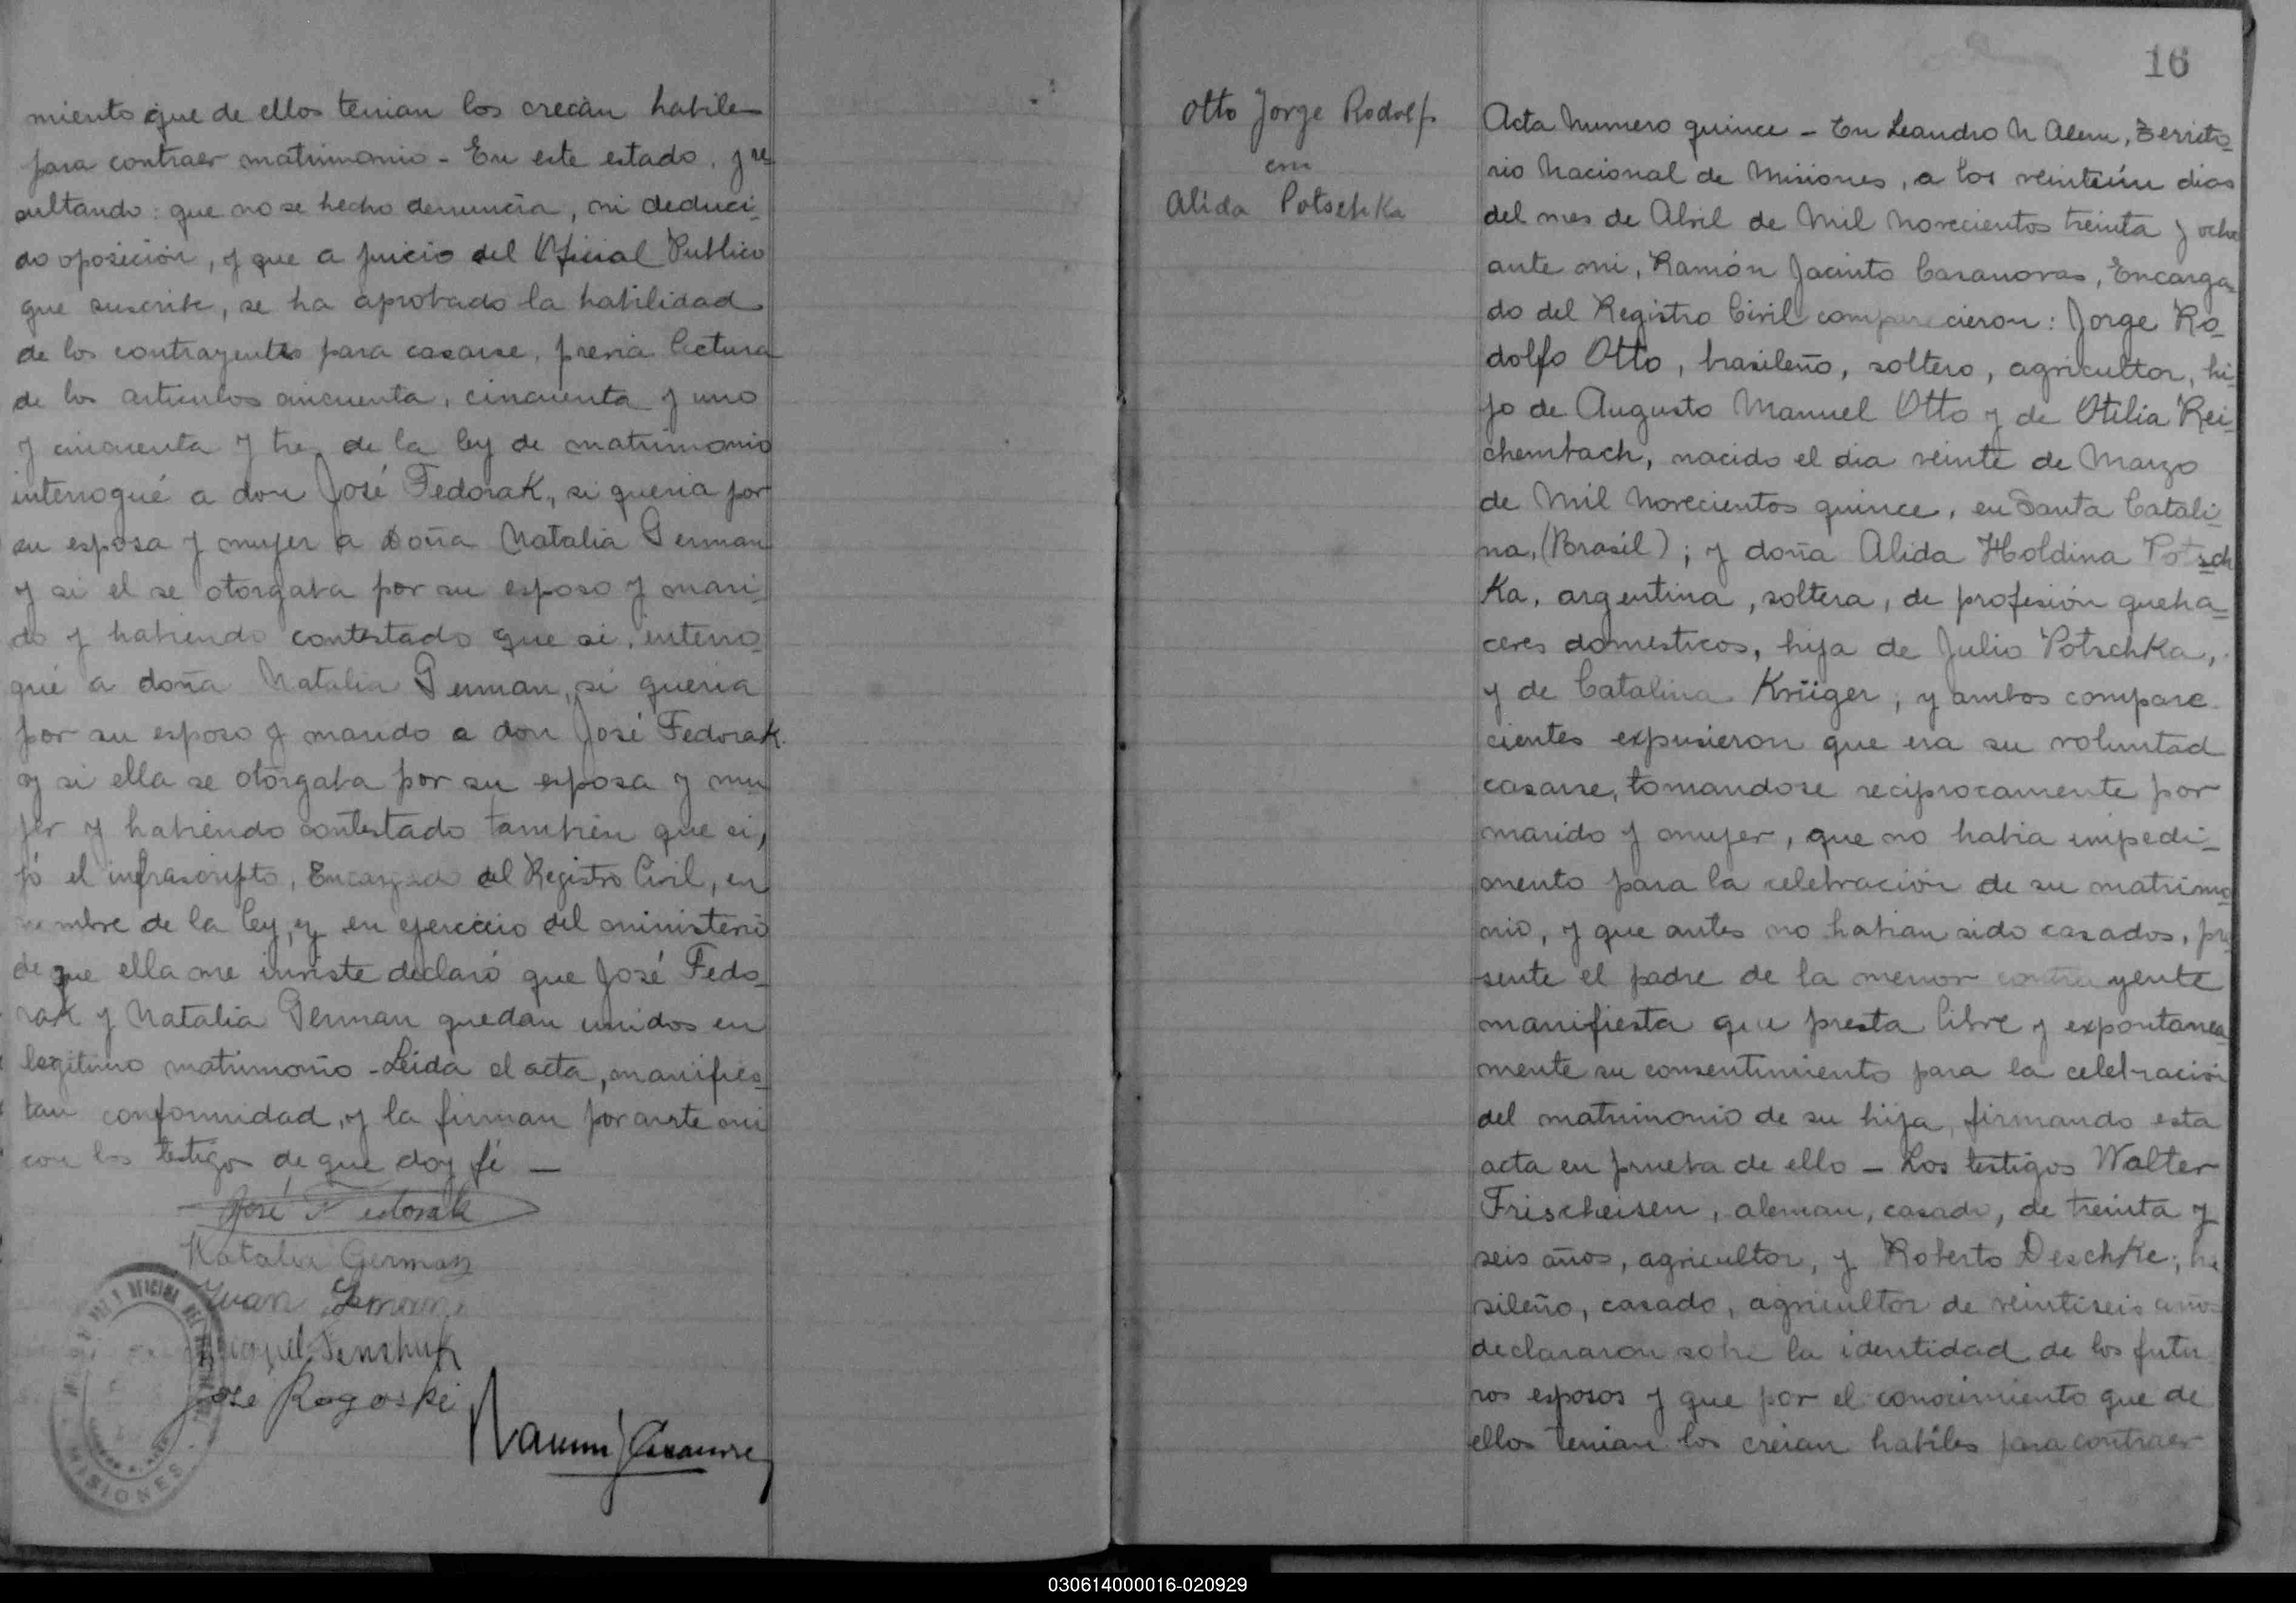 miento que de ellos tenian los crecàn habiles
para contraer matrimonio - En este estado, y re
sultando: que no se hecho denuncia, ni deduci-
do oposición, y que a juicio del Oficial Publico
que suscribe, se ha aprobado la habilidad
de los contrayentes para casarse, previa lectura
de los articulos cincuenta, cincuenta y uno
y cincuenta y tres de la ley de matrimonio
interrogué a don José Fedorak, si queria por
su esposa y mujer a Doña Natalia German
y si el se otorgaba por su esposo y mari-
do y habiendo contestado que si, interro-
gué a doña Natalia German, si queria
por su esposo y marido a don José Fedorak.
y si ella se otorgaba por su esposa y mu
jer y habiendo contestado tambien que si,
yó el infrascripto, Encargado del Registro Civil, en
nombre de la ley, y en ejercicio del ministerio
de que ella me inviste declaró que José Fedo-
rak y Natalia German quedan unidos en
legitimo matrimonio - Leida el acta, manifies-
tan conformidad, y la firman por ante mi
con los testigos de que doy fé —
José Fedorak
Natalia German
Juan
José Rogoski
MISIONES
16
Otto Jorge Rodolfo
con
Alida Potschka
Acta Numero quince - En Leandro N Alem, Territo-
rio Nacional de Misiones, a los veintiún dias
del mes de Abril de Mil Novecientos treinta y ocho
ante mi, Ramón Jacinto Casanovas, Encarga-
do del Registro Civil comparecieron: Jorge Ro-
dolfo Otto, brasileño, soltero, agricultor, hi-
jo de Augusto Manuel Otto y de Otilia Rei-
chembach, nacido el dia veinte de Marzo
de Mil Novecientos quince, en Santa Catali-
na, (Brasil); y doña Alida Holdina Potsch
Ka, argentina, soltera, de profesión queha-
ceres domesticos, hija de Julio Potschka,
y de Catalina Krüger, y ambos compare
cientes expusieron que era su voluntad
casarse, tomandose reciprocamente por
marido y mujer, que no habia impedi-
mento para la celebración de su matrimo
nio, y que antes no habian sido casados, pre
sente el padre de la menor contrayente
manifiesta que presta libre y expontanea
mente su consentimiento para la celebración
del matrimonio de su hija, firmando esta
acta en prueba de ello - Los testigos Walter
Frischeisen, aleman, casado, de treinta y
seis años, agricultor, y Roberto Deschke, bra
sileño, casado, agricultor de veintiseis años
declararon sobre la identidad de los futu
ros esposos y que por el conocimiento que de
ellos tenian los creian habiles para contraer
030614000016-020929